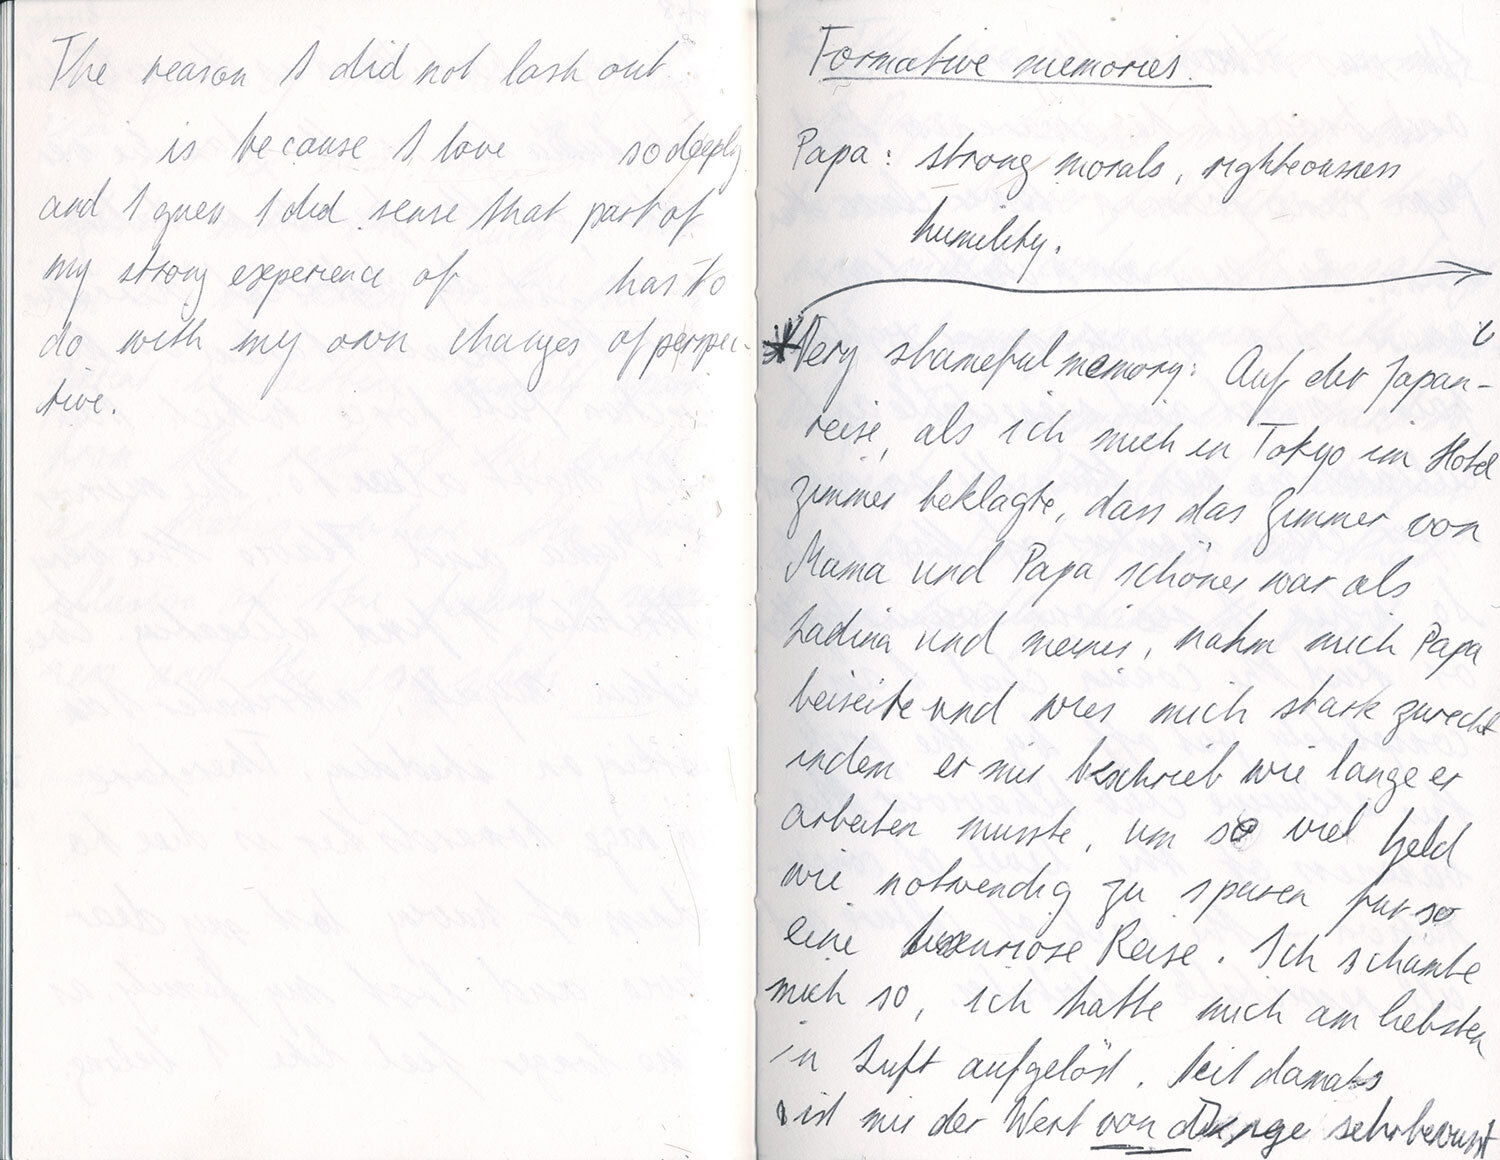 The reason I did not lash out
is because I love so deeply
and I guess I did sense that part of
my strong experience of has to
do with my own changes of perspec-
tive.
Formative memories.
Papa: strong morals, righteousness
humility.
Very shameful memory: Auf der Japan-
reise, als ich mich in Tokyo im Hotel
zimmer beklagte, dass das Zimmer von
Mama und Papa schöner war als
Ladina und meines, nahm mich Papa
beiseite und wies mich stark zurecht
indem er mir beschrieb wie lange er
arbeiten musste, um so viel Geld
wie notwendig zu sparen für so
eine luxuriöse Reise. Ich schämte
mich so, ich hätte mich am liebsten
in Luft aufgelöst. Seit damals
ist mir der Wert von Dinge sehr bewusst